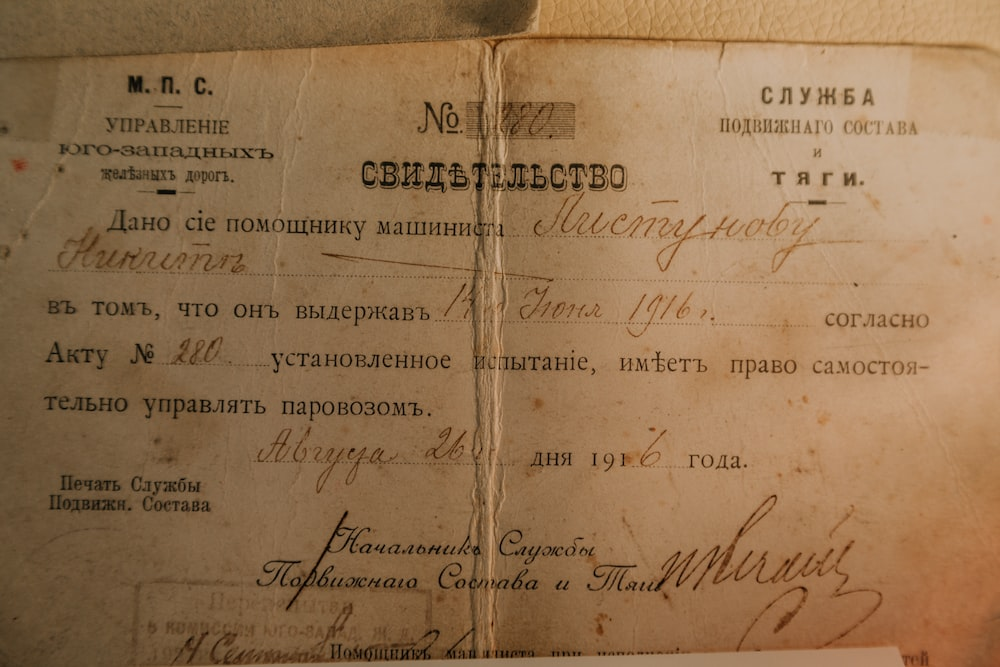 М. П. С.
УПРАВЛЕНІЕ
ЮГО-ЗАПАДНЫХЪ
желѣзныхъ дорогъ.
№ 280.
СВИДѢТЕЛЬСТВО
СЛУЖБА
ПОДВИЖНАГО СОСТАВА
И
ТЯГИ.
Дано сіе помощнику машиниста Листунову
Никитѣ
въ томъ, что онъ выдержавъ 14 Іюня 1916 г. согласно
Акту № 280 установленное испытаніе, имѣетъ право самостоя-
тельно управлять паровозомъ.
Августа 26 дня 1916 года.
Печать Службы
Подвижн. Состава
Начальникъ Службы
Подвижнаго Состава и Тяги
В КОМИССИИ ЮГО-ЗАПАД. Ж. Д.
Помощникъ машиниста при